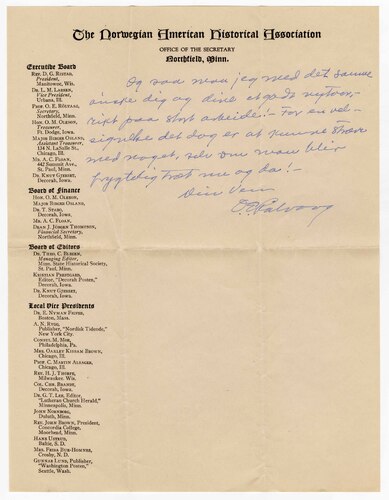 The Norwegian American Historical Association
OFFICE OF THE SECRETARY
Northfield, Minn.
Executive Board
Rev. D. G. Ristad,
President,
Manitowoc, Wis.
Dr. L. M. Larsen,
Vice President,
Urbana, Ill.
Prof. O. E. Rölvaag,
Secretary,
Northfield, Minn.
Hon. O. M. Oleson,
Treasurer,
Ft. Dodge, Iowa.
Major Birger Osland,
Assistant Treasurer,
134 N. LaSalle St.,
Chicago, Ill.
Mr. A. C. Floan,
St. Paul, Minn.
Dr. Knut Gjerset,
Decorah, Iowa.
Board of Finance
Hon. O. M. Oleson,
Major Birger Osland,
Dr. T. Stabo,
Decorah, Iowa.
Mr. A. C. Floan,
Dean J. Jörgen Thompson,
Financial Secretary,
Northfield, Minn.
Board of Editors
Dr. Theo. C. Blegen,
Managing Editor,
Minn. State Historical Society,
St. Paul, Minn.
Kristian Prestgard,
Editor, "Decorah Posten,"
Decorah, Iowa.
Dr. Knut Gjerset,
Decorah, Iowa.
Local Vice Presidents
Boston, Mass.
A. N. Rygg,
Publisher, "Nordisk Tidende,"
New York City.
Consul M. Moe,
Philadelphia, Pa.
Chicago, Ill.
Chicago, Ill.
Rev. H. J. Thorpe,
Milwaukee, Wis.
Decorah, Iowa.
Dr. G. T. Lee, Editor,
"Lutheran Church Herald,"
Minneapolis, Minn.
Duluth, Minn.
Rev. John Brown, President,
Concordia College,
Moorhead, Minn.
Hans Ustrud,
Baltic, S. D.
Crosby, N. D.
Gunnar Lund, Publisher,
"Washington Posten,"
Seattle, Wash.
Og saa maa jeg med det samme
ønske dig og dine et godt nytaar,
rikt paa stort arbeide! – For en vel-
signelse det dog er at kunne stræve
med noget, selv om man blir
frygtelig træt nu og da! –
Din Ven
O. E. Rølvaag